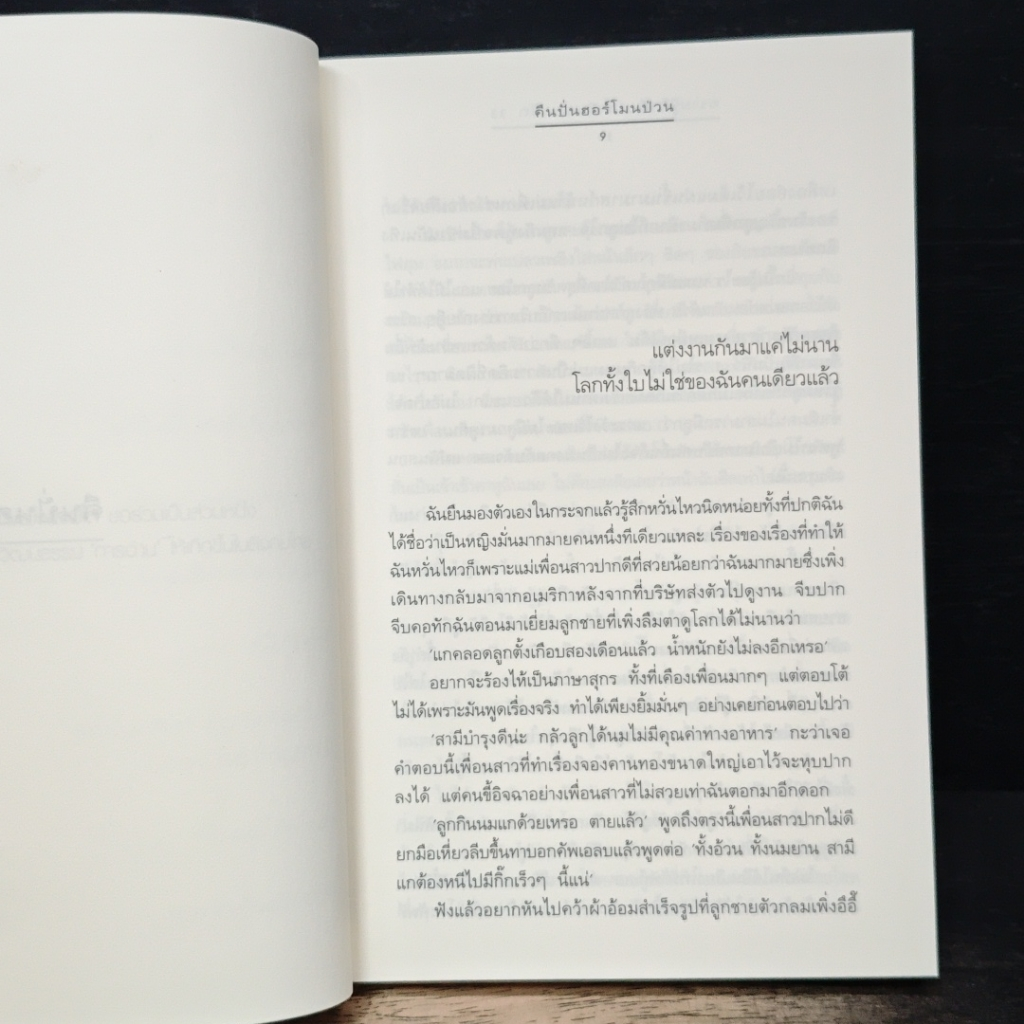 คืนปั่นฮอร์โมนป่วน
9
แต่งงานกันมาแค่ไม่นาน
โลกทั้งใบไม่ใช่ของฉันคนเดียวแล้ว
ฉันยืนมองตัวเองในกระจกแล้วรู้สึกหวั่นไหวนิดหน่อยทั้งที่ปกติฉัน
ได้ชื่อว่าเป็นหญิงมั่นมากมายคนหนึ่งทีเดียวแหละ เรื่องของเรื่องที่ทำให้
ฉันหวั่นไหวก็เพราะแม่เพื่อนสาวปากดีที่สวยน้อยกว่าฉันมากมายซึ่งเพิ่ง
เดินทางกลับมาจากอเมริกาหลังจากที่บริษัทส่งตัวไปดูงาน จีบปาก
จีบคอทักฉันตอนมาเยี่ยมลูกชายที่เพิ่งลืมตาดูโลกได้ไม่นานว่า
'แกคลอดลูกตั้งเกือบสองเดือนแล้ว น้ำหนักยังไม่ลงอีกเหรอ'
อยากจะร้องไห้เป็นภาษาสุกร ทั้งที่เคืองเพื่อนมากๆ แต่ตอบโต้
ไม่ได้เพราะมันพูดเรื่องจริง ทำได้เพียงยิ้มมั่นๆ อย่างเคยก่อนตอบไปว่า
'สามีบำรุงดีน่ะ กลัวลูกได้นมไม่มีคุณค่าทางอาหาร' กะว่าเจอ
คำตอบนี้เพื่อนสาวที่ทำเรื่องจองคานทองขนาดใหญ่เอาไว้จะหุบปาก
ลงได้ แต่คนขี้อิจฉาอย่างเพื่อนสาวที่ไม่สวยเท่าฉันตอกมาอีกดอก
'ลูกกินนมแกด้วยเหรอ ตายแล้ว' พูดถึงตรงนี้เพื่อนสาวปากไม่ดี
ยกมือเหี่ยวลีบขึ้นทาบอกคัพเอลบแล้วพูดต่อ 'ทั้งอ้วน ทั้งนมยาน สามี
แกต้องหนีไปมีกิ๊กเร็วๆ นี้แน่'
ฟังแล้วอยากหันไปคว้าผ้าอ้อมสำเร็จรูปที่ลูกชายตัวกลมเพิ่งอึอึ๊